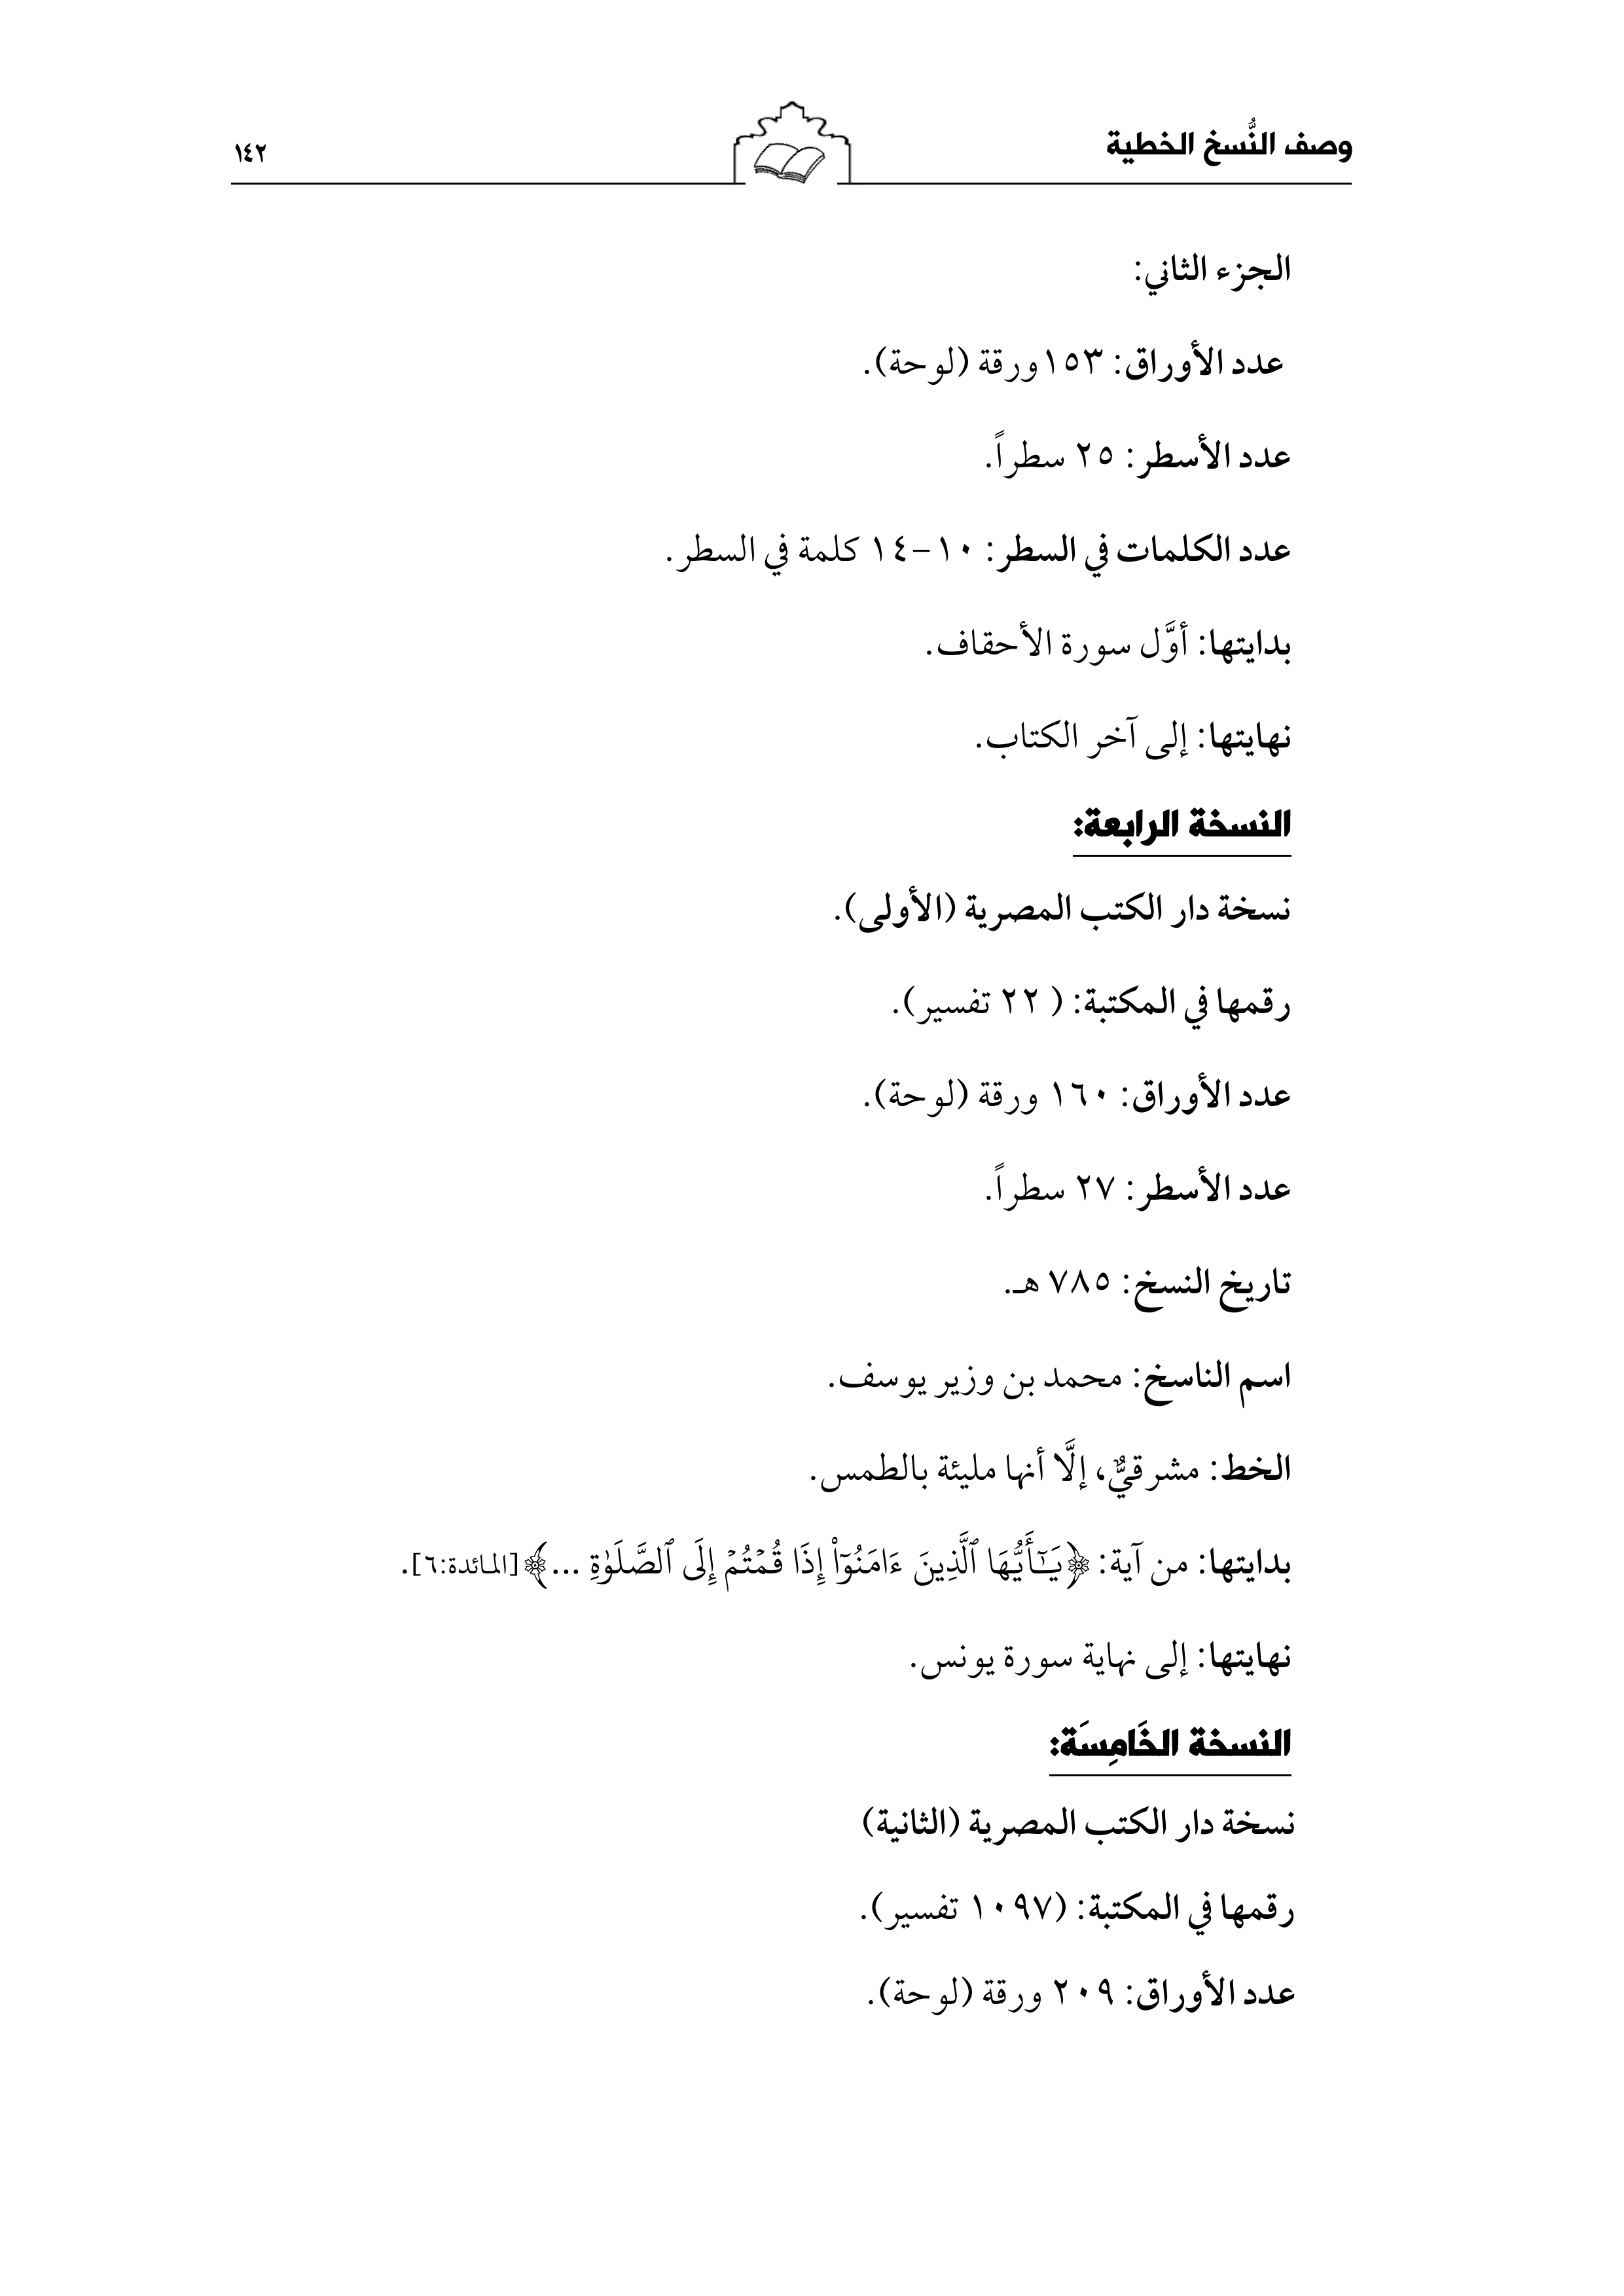 وصف النُّسخ الخطية
١٤٢
الجزء الثاني:
عدد الأوراق: ١٥٣ورقة (لوحة).
عدد الأسطر: ٢٥ سطراً.
عدد الكلمات في السطر: ١٠-١٤ كلمة في السطر.
بدايتها: أوَّل سورة الأحقاف.
نهايتها: إلى آخر الكتاب.
النسخة الرابعة:
نسخة دار الكتب المصرية (الأولى).
رقمها في المكتبة: ( ٢٢ تفسير).
عدد الأوراق: ١٦٠ ورقة (لوحة).
عدد الأسطر: ٢٧ سطراً.
تاريخ النسخ: ٧٨٥ هـ.
اسم الناسخ: محمد بن وزير يوسف.
الخط: مشرقيٌّ، إلَّا أنها مليئة بالطمس.
بدايتها: من آية: ﴿يَـٰٓأَيُّهَا ٱلَّذِينَ ءَامَنُوٓا۟ إِذَا قُمۡتُمۡ إِلَى ٱلصَّلَوٰةِ ...﴾[المائدة:٦].
نهايتها: إلى نهاية سورة يونس.
النسخة الخَامِسَة:
نسخة دار الكتب المصرية (الثانية)
رقمها في المكتبة: (١٠٩٧ تفسير).
عدد الأوراق: ٢٠٩ ورقة (لوحة).